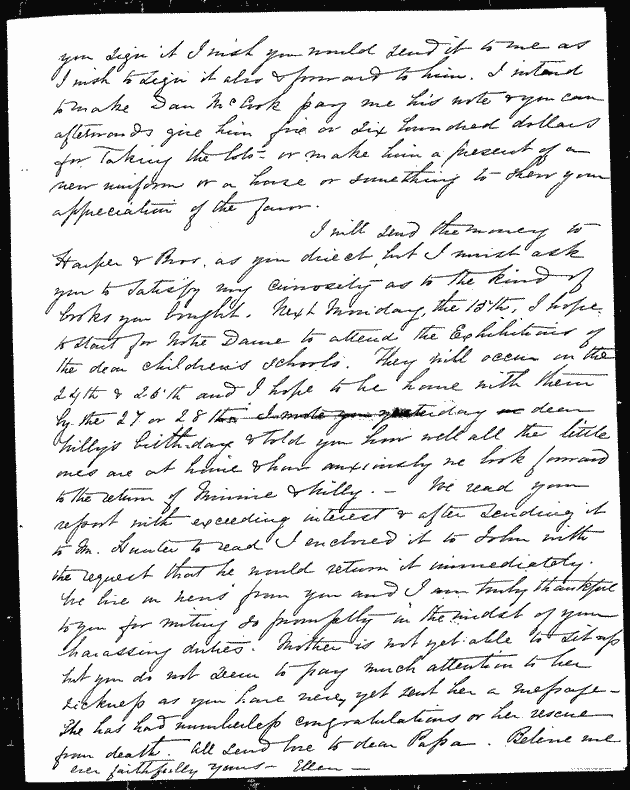 you sign it I wish you would send it to me as
I wish to sign it also & forward to him. I intend
to make Dan McCook pay me his note & you can
afterwards give him five or six hundred dollars
for Taking the lots – or make him a present of a
new uniform or a horse or something to shew your
appreciation of the favor.
I will send the money to
Harper & Bros. as you direct, but I must ask
you to satisfy my curiosity as to the kind of
books you bought. Next Monday, the 15th, I hope
to start for Notre Dame to attend the Exhibitions of
the dear children's schools. They will occur on the
24th & 25th and I hope to be home with them
by the 27 or 28th. I wrote you yesterday dear
Willy's birthday & told you how well all the little
ones are at home & how anxiously we look forward
to the return of Minnie & Willy. – We read your
report with exceeding interest & after sending it
to M. Hunter to read I enclosed it to John with
the request that he would return it immediately.
We live on news from you and I am truly thankful
to you for writing so promptly in the midst of your
harassing duties. Mother is not yet able to sit up
but you do not seem to pay much attention to her
sickness as you have never yet sent her a message –
She has had numberless congratulations on her rescue
from death. All send love to dear Papa. Believe me
ever faithfully yours – Ellen –